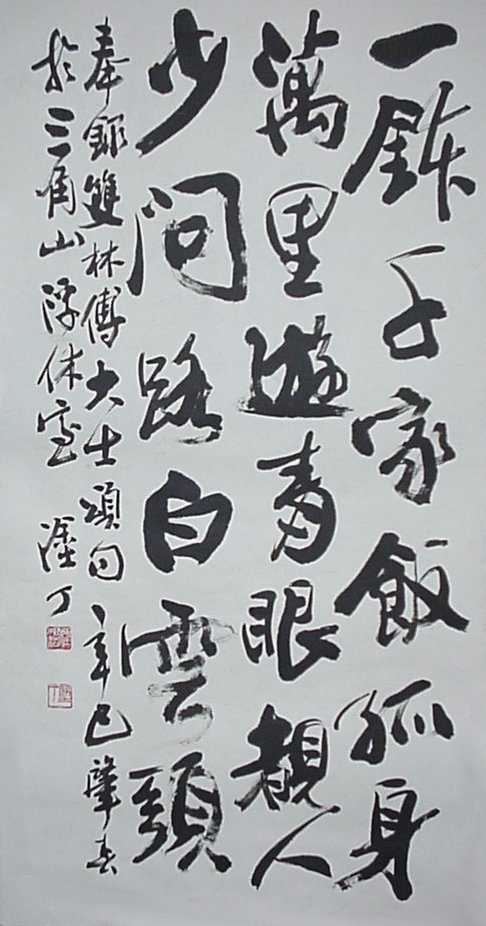 一鉢千家飯孤身
萬里遊青眼覩人
少問路白雲頭
奉錄雙林傅大士頌句辛巳肇春
於三角山浮休室